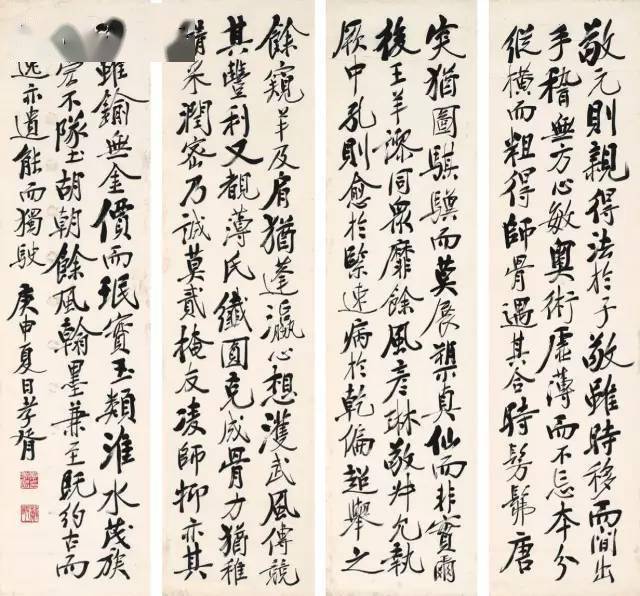 敬元則親得法於子敬雖時移而間出
手稽無方心敏奧術虛薄而不忘本分
縱横而粗得師骨遇其合時髣髴唐
突猶圖騏驥而莫展塑真仙而非實爾
後王羊濛同衆靡餘風彦琳敬叔允執
厥中孔則愈於緊速病於乾偏超舉之
餘窺羊及肩猶蓬瀛心想濩武風傳競
其豐利又觀薄氏纖圓克成骨力猶稚
精采潤密乃誠莫貳掩友凌師抑亦其
雖鍮無金價而珉實玉類淮水茂族
不隊玉胡朝餘風翰墨兼至既約古而
逸亦遺能而獨駛 庚申夏日孝胥